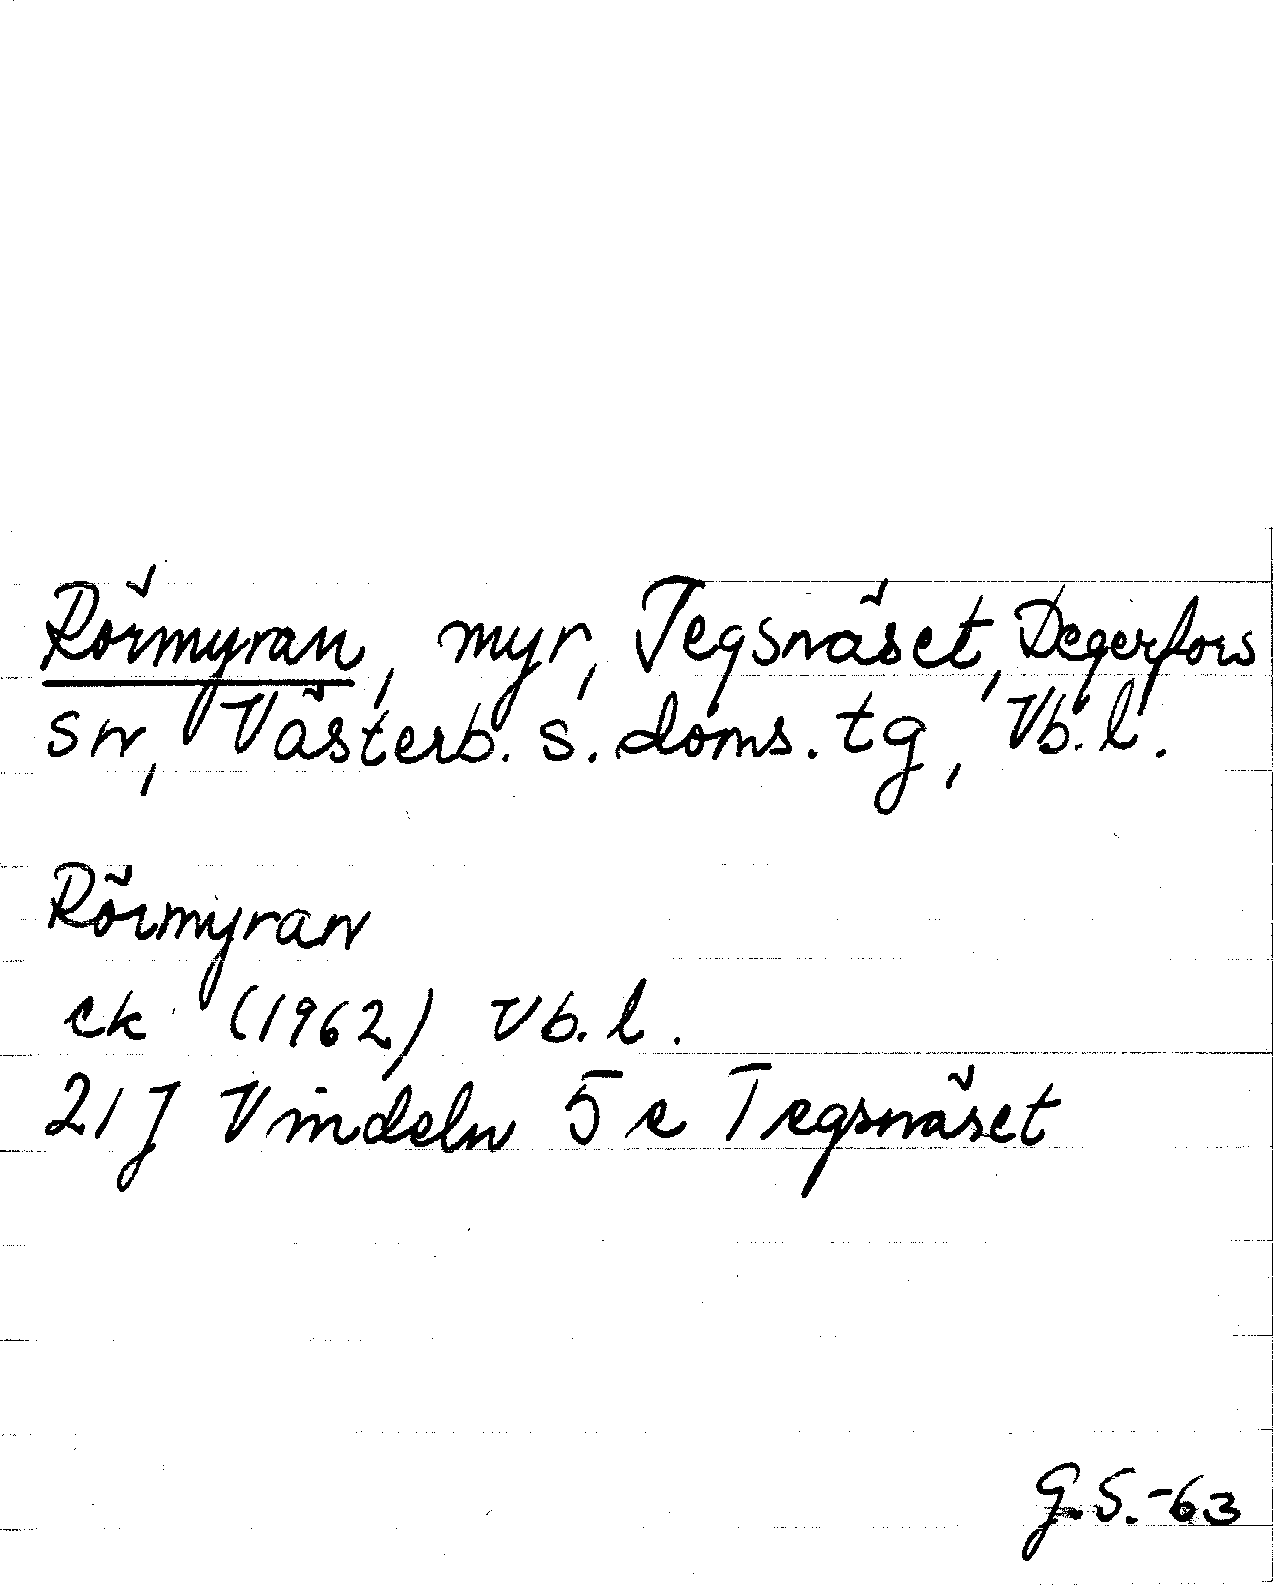 Rörmyran, myr, Tegsnäset, Degerfors
sn, Västerb. s. doms. tg, Vb. l.
Rörmyran
ek (1962) Vb. l.
21J Vindeln 5e Tegsnäset
G.S.-63